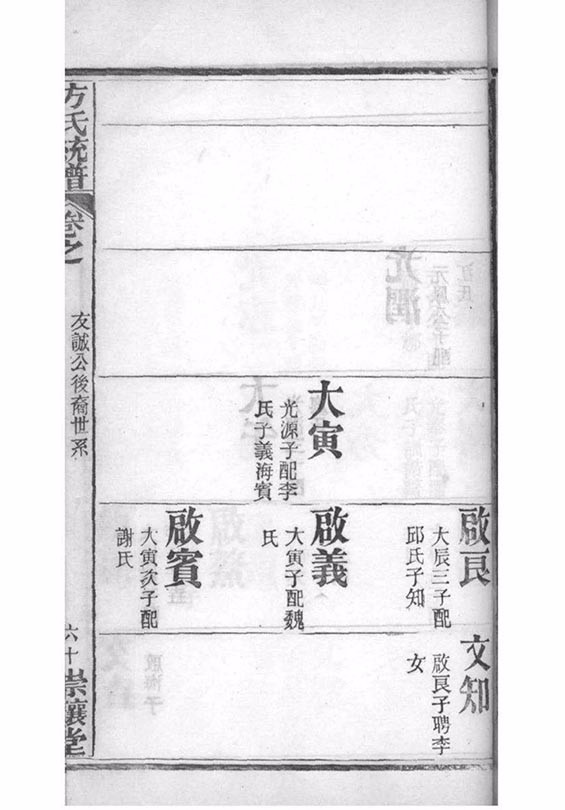 大寅
光源子配李
氏子義海賓
啟良
大辰三子配
邱氏子知
啟義
大寅子配魏
氏
啟賓
大寅次子配
謝氏
文知
啟良子聘李
女
方氏統譜
卷之
友誠公後裔世系
六十
崇讓堂